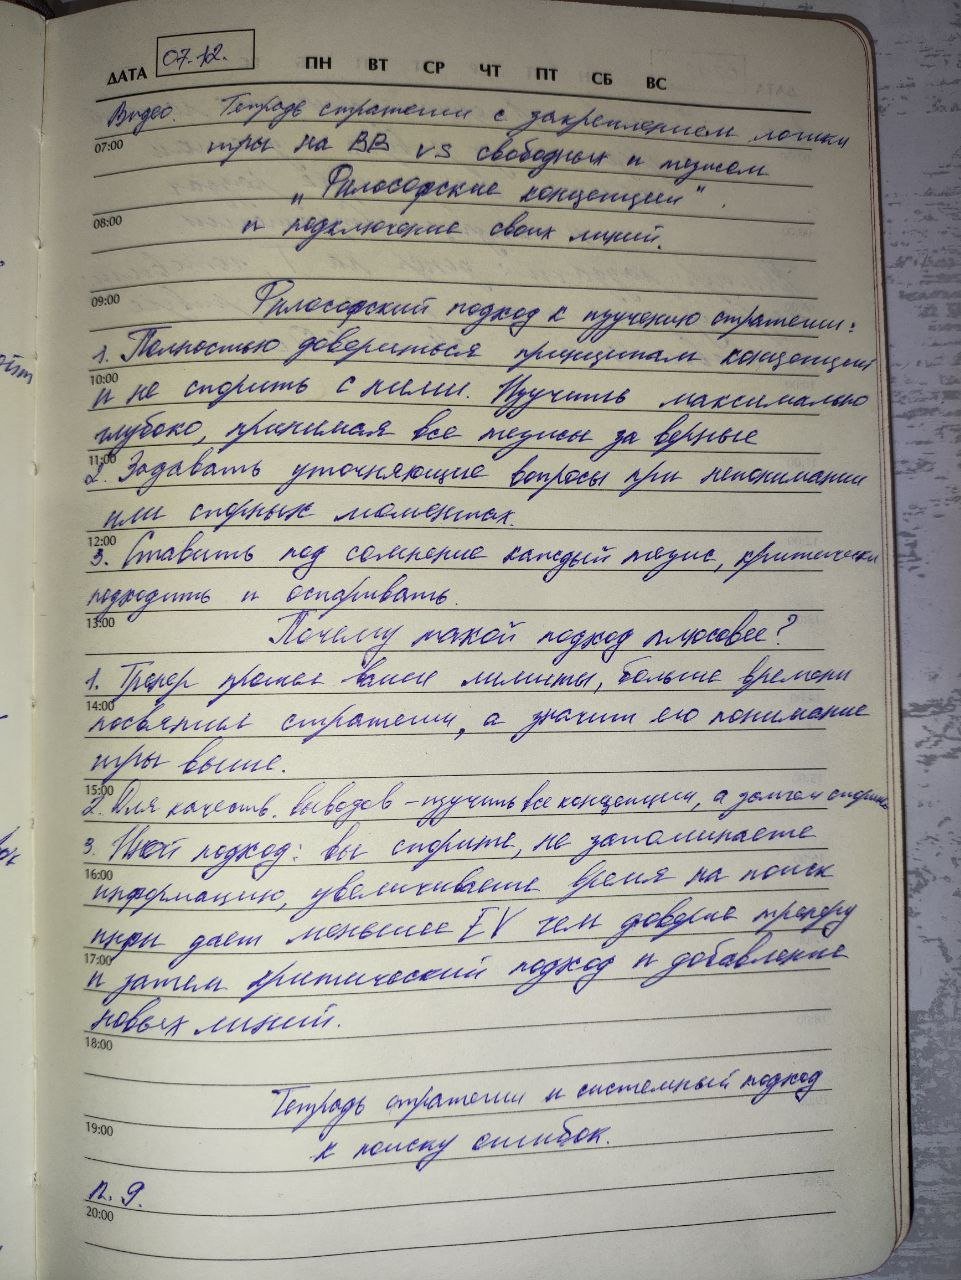 ДАТА 07.12. ПН ВТ СР ЧТ ПТ СБ ВС
Видео. Тетрадь стратегии с закреплением логики
07:00
игры на BB vs свободных и тезисом
"Философские концепции".
08:00
и подключение своих линий.
09:00
Философский подход к изучению стратегии:
1. Полностью довериться принципам концепций
10:00
и не спорить с ними. Изучить максимально
глубоко, принимая все тезисы за верные
11:00
2. Задавать уточняющие вопросы при непонимании
или спорных моментах.
12:00
3. Ставить под сомнение каждый тезис, критически
подходить и оспаривать.
13:00
Почему такой подход плюсовее?
1. Тренер прошел ваши лимиты, больше времени
14:00
посвятил стратегии, а значит его понимание
игры выше.
15:00
2. Для качеств. выводов - изучить все концепции, а затем спорить
3. Иной подход: вы спорите, не запоминаете
16:00
информацию, увеличиваете время на поиск
игры дает меньшее EV чем доверие тренеру
17:00
и затем критический подход и добавление
новых линий.
18:00
Тетрадь стратегии и системный подход
19:00
к поиску ошибок.
п. 9.
20:00